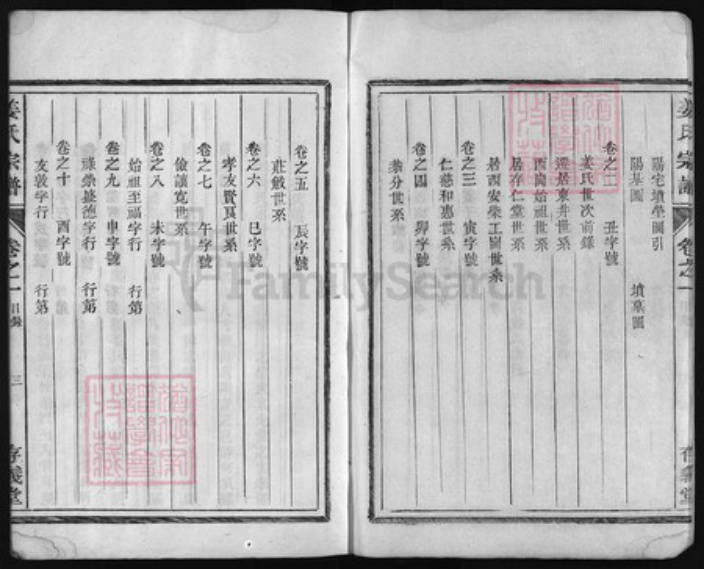 姜氏宗譜
卷之一
存義堂
陽宅墳塋圖引
陽基圖 墳墓圖
卷之二 丑字號
姜氏世次前錄
遷居東井世系
西崗始祖世系
居存仁堂世系
居西安柴工圳世系
卷之三 寅字號
仁慈和惠世系
卷之四 卯字號
恭分世系
卷之五 辰字號
莊敬世系
卷之六 巳字號
孝友賢良世系
卷之七 午字號
儉讓寬世系
卷之八 未字號
始祖至福字行 行第
卷之九 申字號
祿榮益德字行 行第
卷之十 酉字號
友敦字行 行第
姜氏宗譜
卷之一
目錄
三
存義堂
FamilySearch